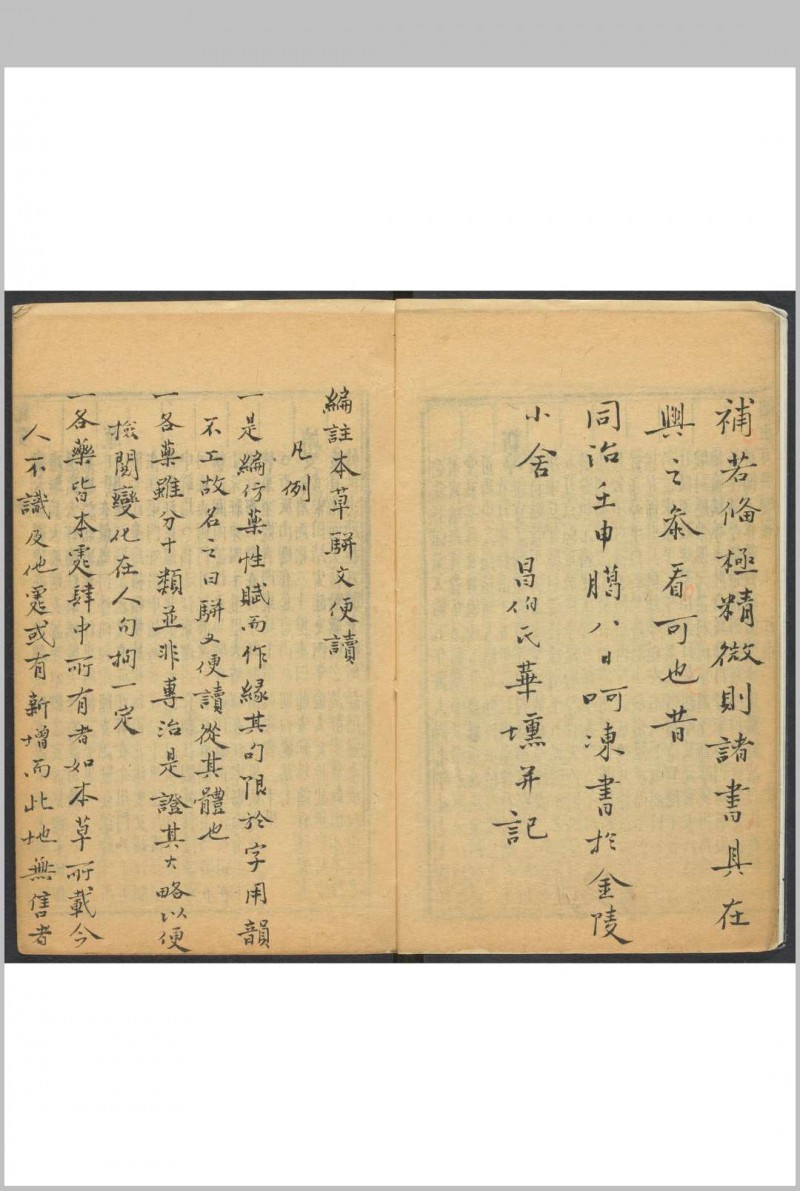 補若備極精微則諸書具在
興之叅看可也昔
同治壬申臈八日呵凍書於金陵
小舍
昌伯氏華壎并記
編註本草駢文便讀
凡例
一是編仿藥性賦而作緣其句限於字用韻
不工故名之曰駢文便讀從其體也
一各藥雖分十類並非專治是證其大略以便
檢閱變化在人勿拘一定
一各藥皆本處肆中所有者如本草所載今
人不識及他處或有新增而此地無售者